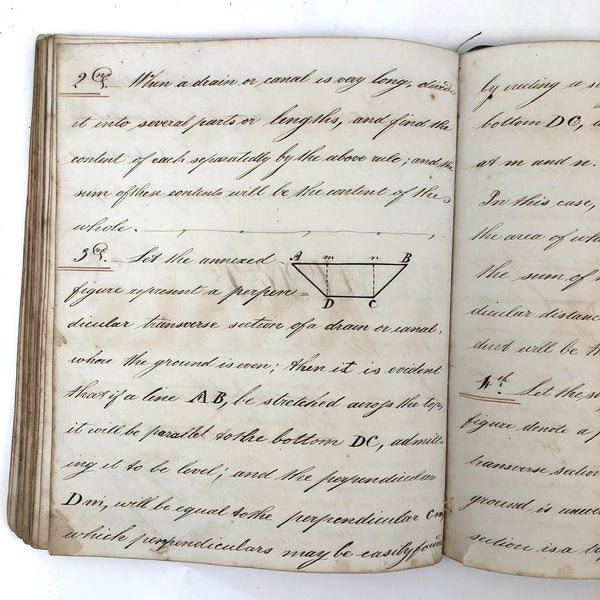 2nd. When a drain or canal is very long, divide
it into several parts or lengths, and find the
content of each separatedly by the above rule; and the
sum of these contents will be the content of the
whole.
3d. Let the annexed
A m n B
D C
figure represent a perpen=
dicular transverse section of a drain or canal.
where the ground is even; then it is evident
that if a line AB, be stretched across the top,
it will be parallel to the bottom DC, admitt-
ing it to be level; and the perpendicular
Dm, will be equal to the perpendicular Cn,
which perpendiculars may be easily found
by
bottom DC,
at m and n.
In this case,
the area of
the sum of
dicular
duct will be
4th. Let the
figure denote a
transverse section
ground is
section is a